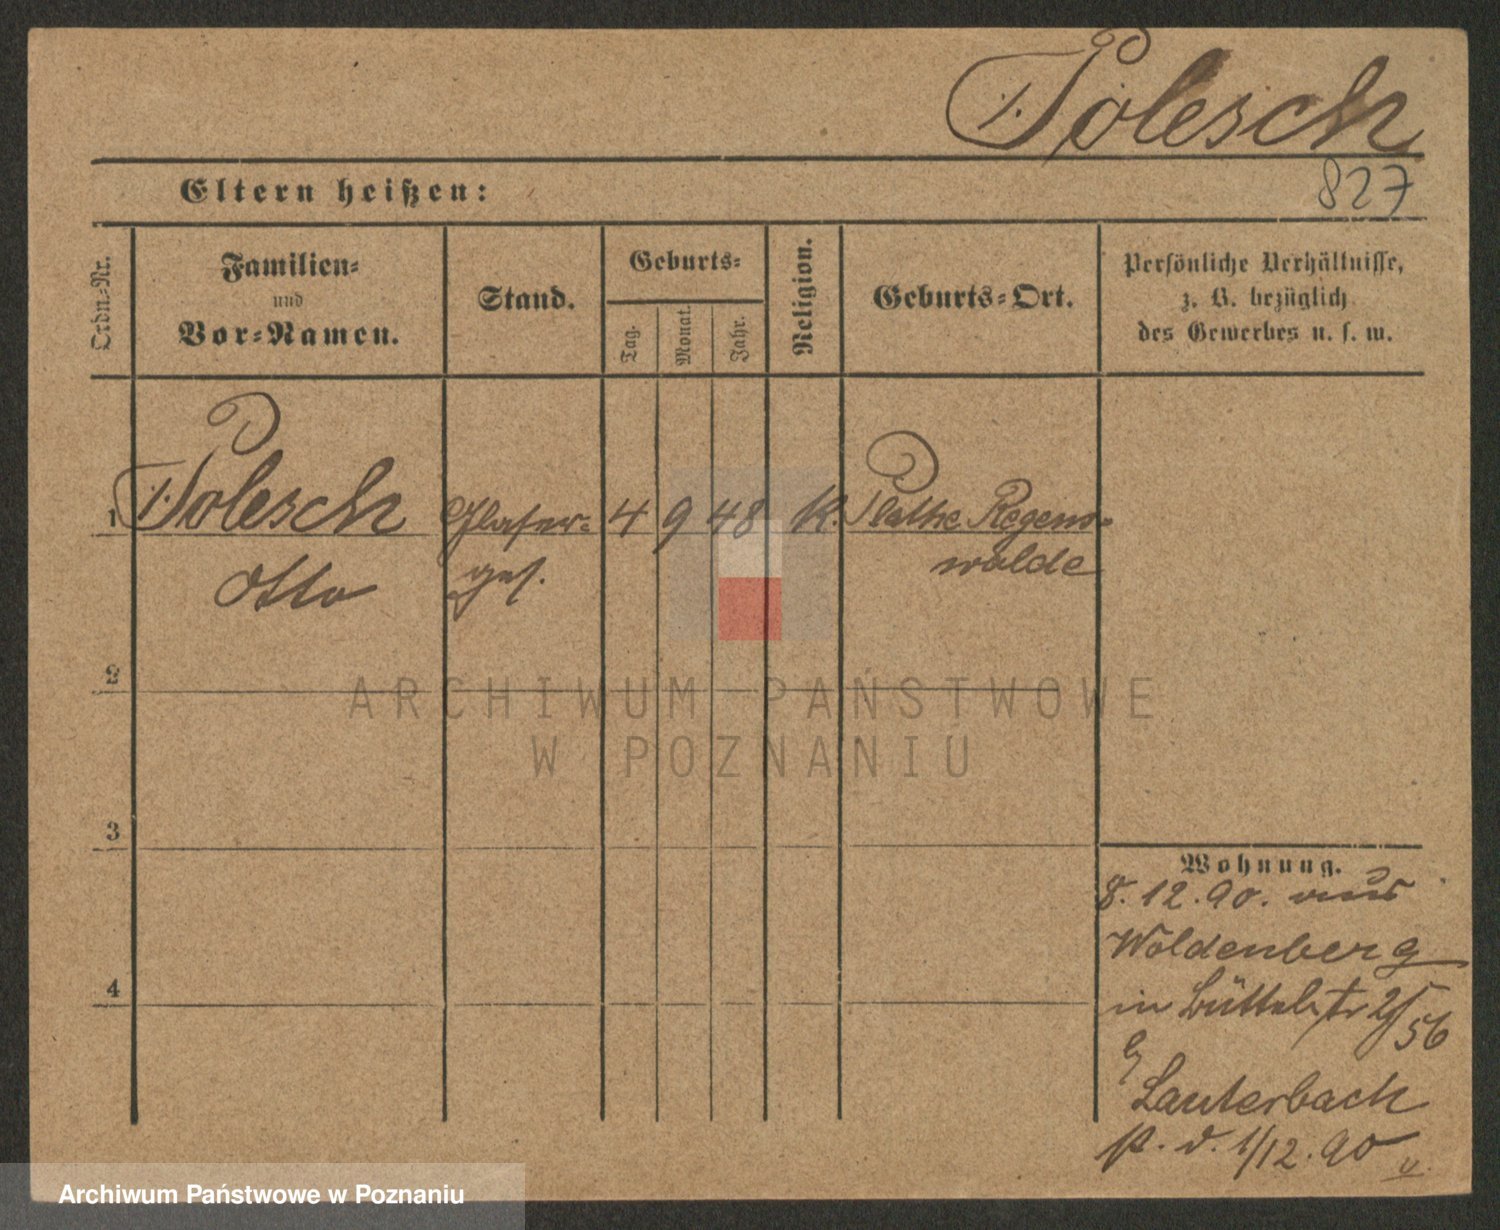 Polesch
827
Eltern heißen:
Ordn.-Nr.
Familien-
und
Vor-Namen.
Stand.
Geburts-
Tag.
Monat.
Jahr.
Religion.
Geburts-Ort.
Persönliche Verhältnisse,
z. B. bezüglich
des Gewerbes u. s. w.
1 Polesch Glaser- 4 9 48 K. Plathe Regens-
Otto ges. walde
2
3
4
Wohnung.
8.12.90. aus
Woldenberg
in Büttelstr 25/56
b/ Lauterbach
p. d. 1/12.90
ARCHIWUM PAŃSTWOWE
W POZNANIU
Archiwum Państwowe w Poznaniu